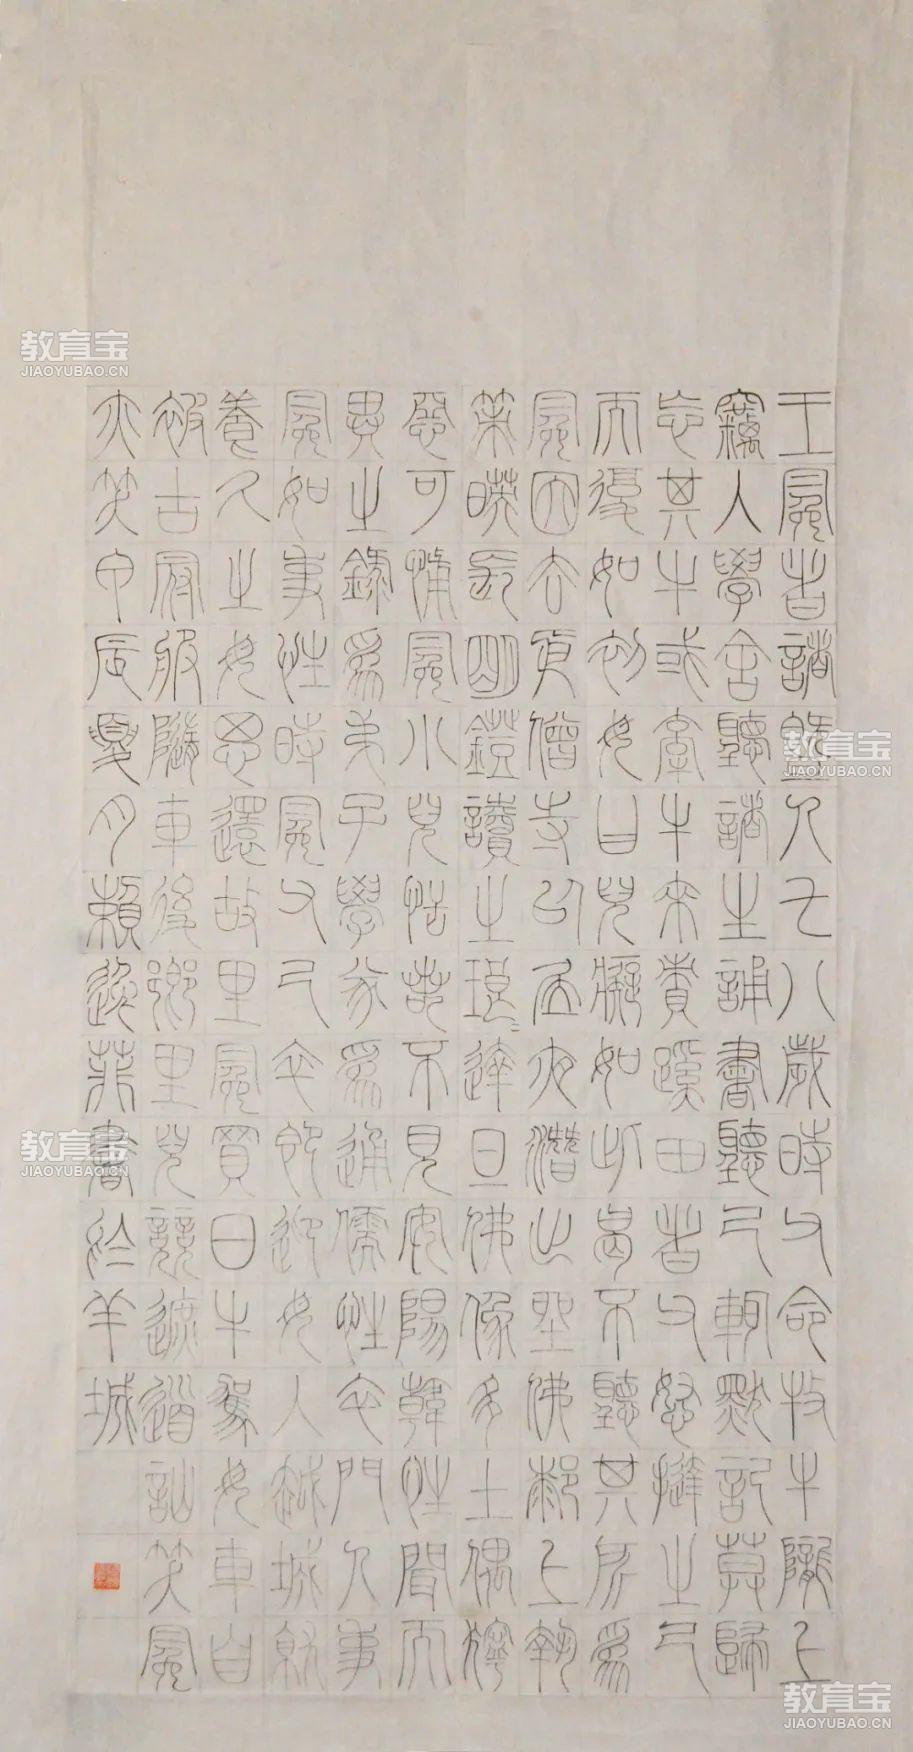 王冕者諸暨人七八歲時父命牧牛隴上
竊入學舍聽諸生誦書聽已輒默記莫歸
忘其牛或牽牛來責蹊田者父怒撻之已
而復如初母曰兒癡如此曷不聽其所爲
冕因去依僧寺以居夜潛出坐佛厀上執
策映長明鐙讀之琅〻達旦佛像多土偶獰
惡可怖冕小兒恬若不見安陽韓性聞而
異之錄爲弟子學遂爲通儒性卒門人事
冕如事性時冕父已卒即迎母入越城就
養久之母思還故里冕買白牛駕母車自
被古冠服隨車後鄉里兒競遮道訕笑冕
亦笑甲辰夏月賴逸菲書於羊城
教育宝
JIAOYUBAO.CN
教育宝
JIAOYUBAO.CN
教育宝
JIAOYUBAO.CN
教育宝
JIAOYUBAO.CN